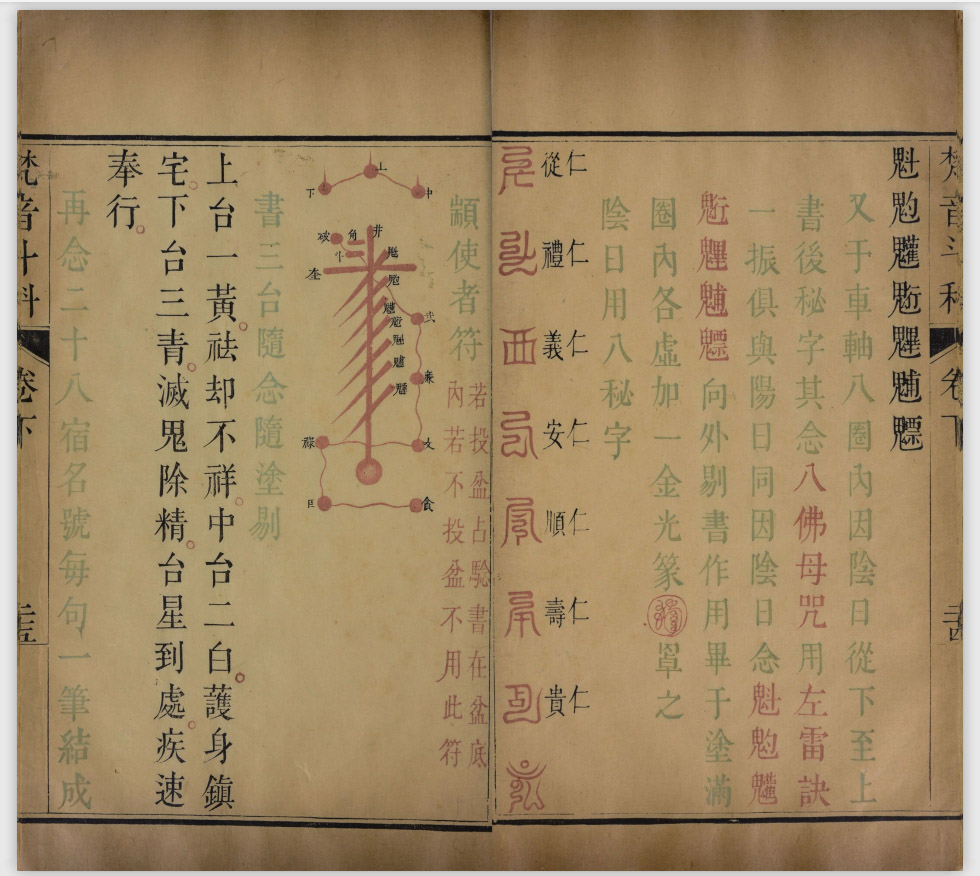 梵音斗科 卷下 二十四
魁 魒
又于車軸八圈內因陰日從下至上
書後秘字其念八佛母咒用左雷訣
一振俱與陽日同因陰日念魁
魒向外剔書作用畢于塗滿
圈內各虛加一金光篆罩之
陰日用八秘字
仁從
仁禮
仁義
仁安
仁順
仁壽
仁貴
顓使者符
若投盆占驗書在盆底
內若不投盆不用此符
上
中
下
井
角
斗
破
奎
武
廉
文
祿
巨
貪
書三台隨念隨塗剔
上台一黃祛却不祥中台二白護身鎮
宅下台三青滅鬼除精台星到處疾速
奉行
再念二十八宿名號每句一筆結成
梵音斗科 卷下 二十五